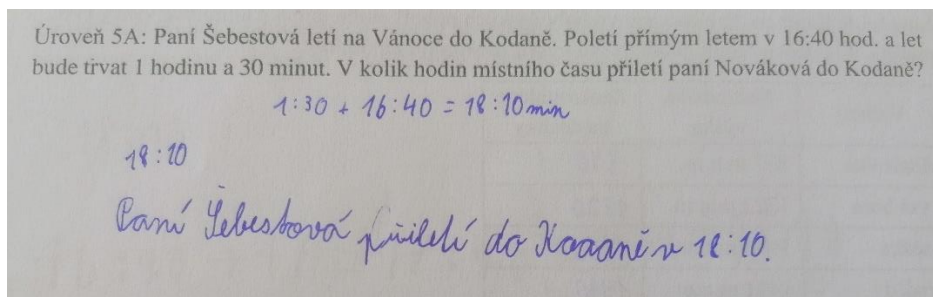 Úroveň 5A: Paní Šebestová letí na Vánoce do Kodaně. Poletí přímým letem v 16:40 hod. a let
bude trvat 1 hodinu a 30 minut. V kolik hodin místního času přiletí paní Nováková do Kodaně?
1:30 + 16:40 = 18:10 min
18:10
Paní Šebestová přiletí do Kodaně v 18:10.